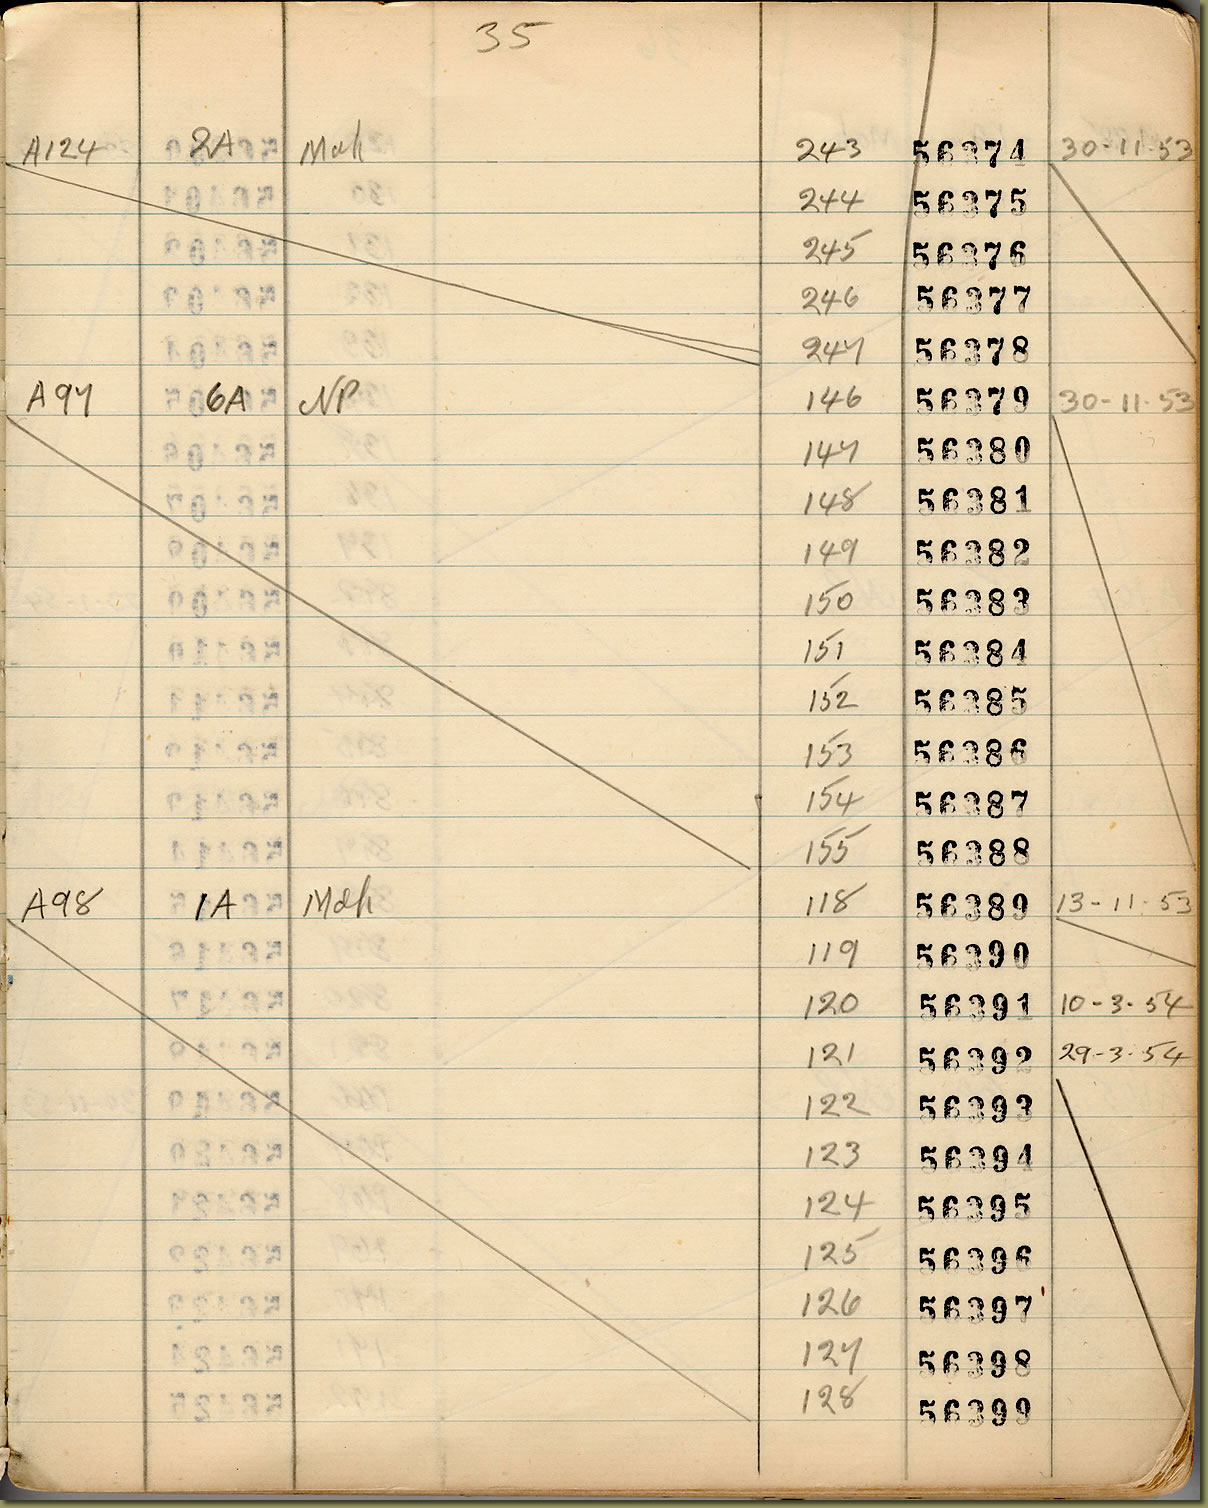 35
A124 2A Mah 243 56374 30-11-53
244 56375
245 56376
246 56377
247 56378
A97 6A NP 146 56379 30-11-53
147 56380
148 56381
149 56382
150 56383
151 56384
152 56385
153 56386
154 56387
155 56388
A98 1A Mah 118 56389 13-11-53
119 56390
120 56391 10-3-54
121 56392 29-3-54
122 56393
123 56394
124 56395
125 56396
126 56397
127 56398
128 56399